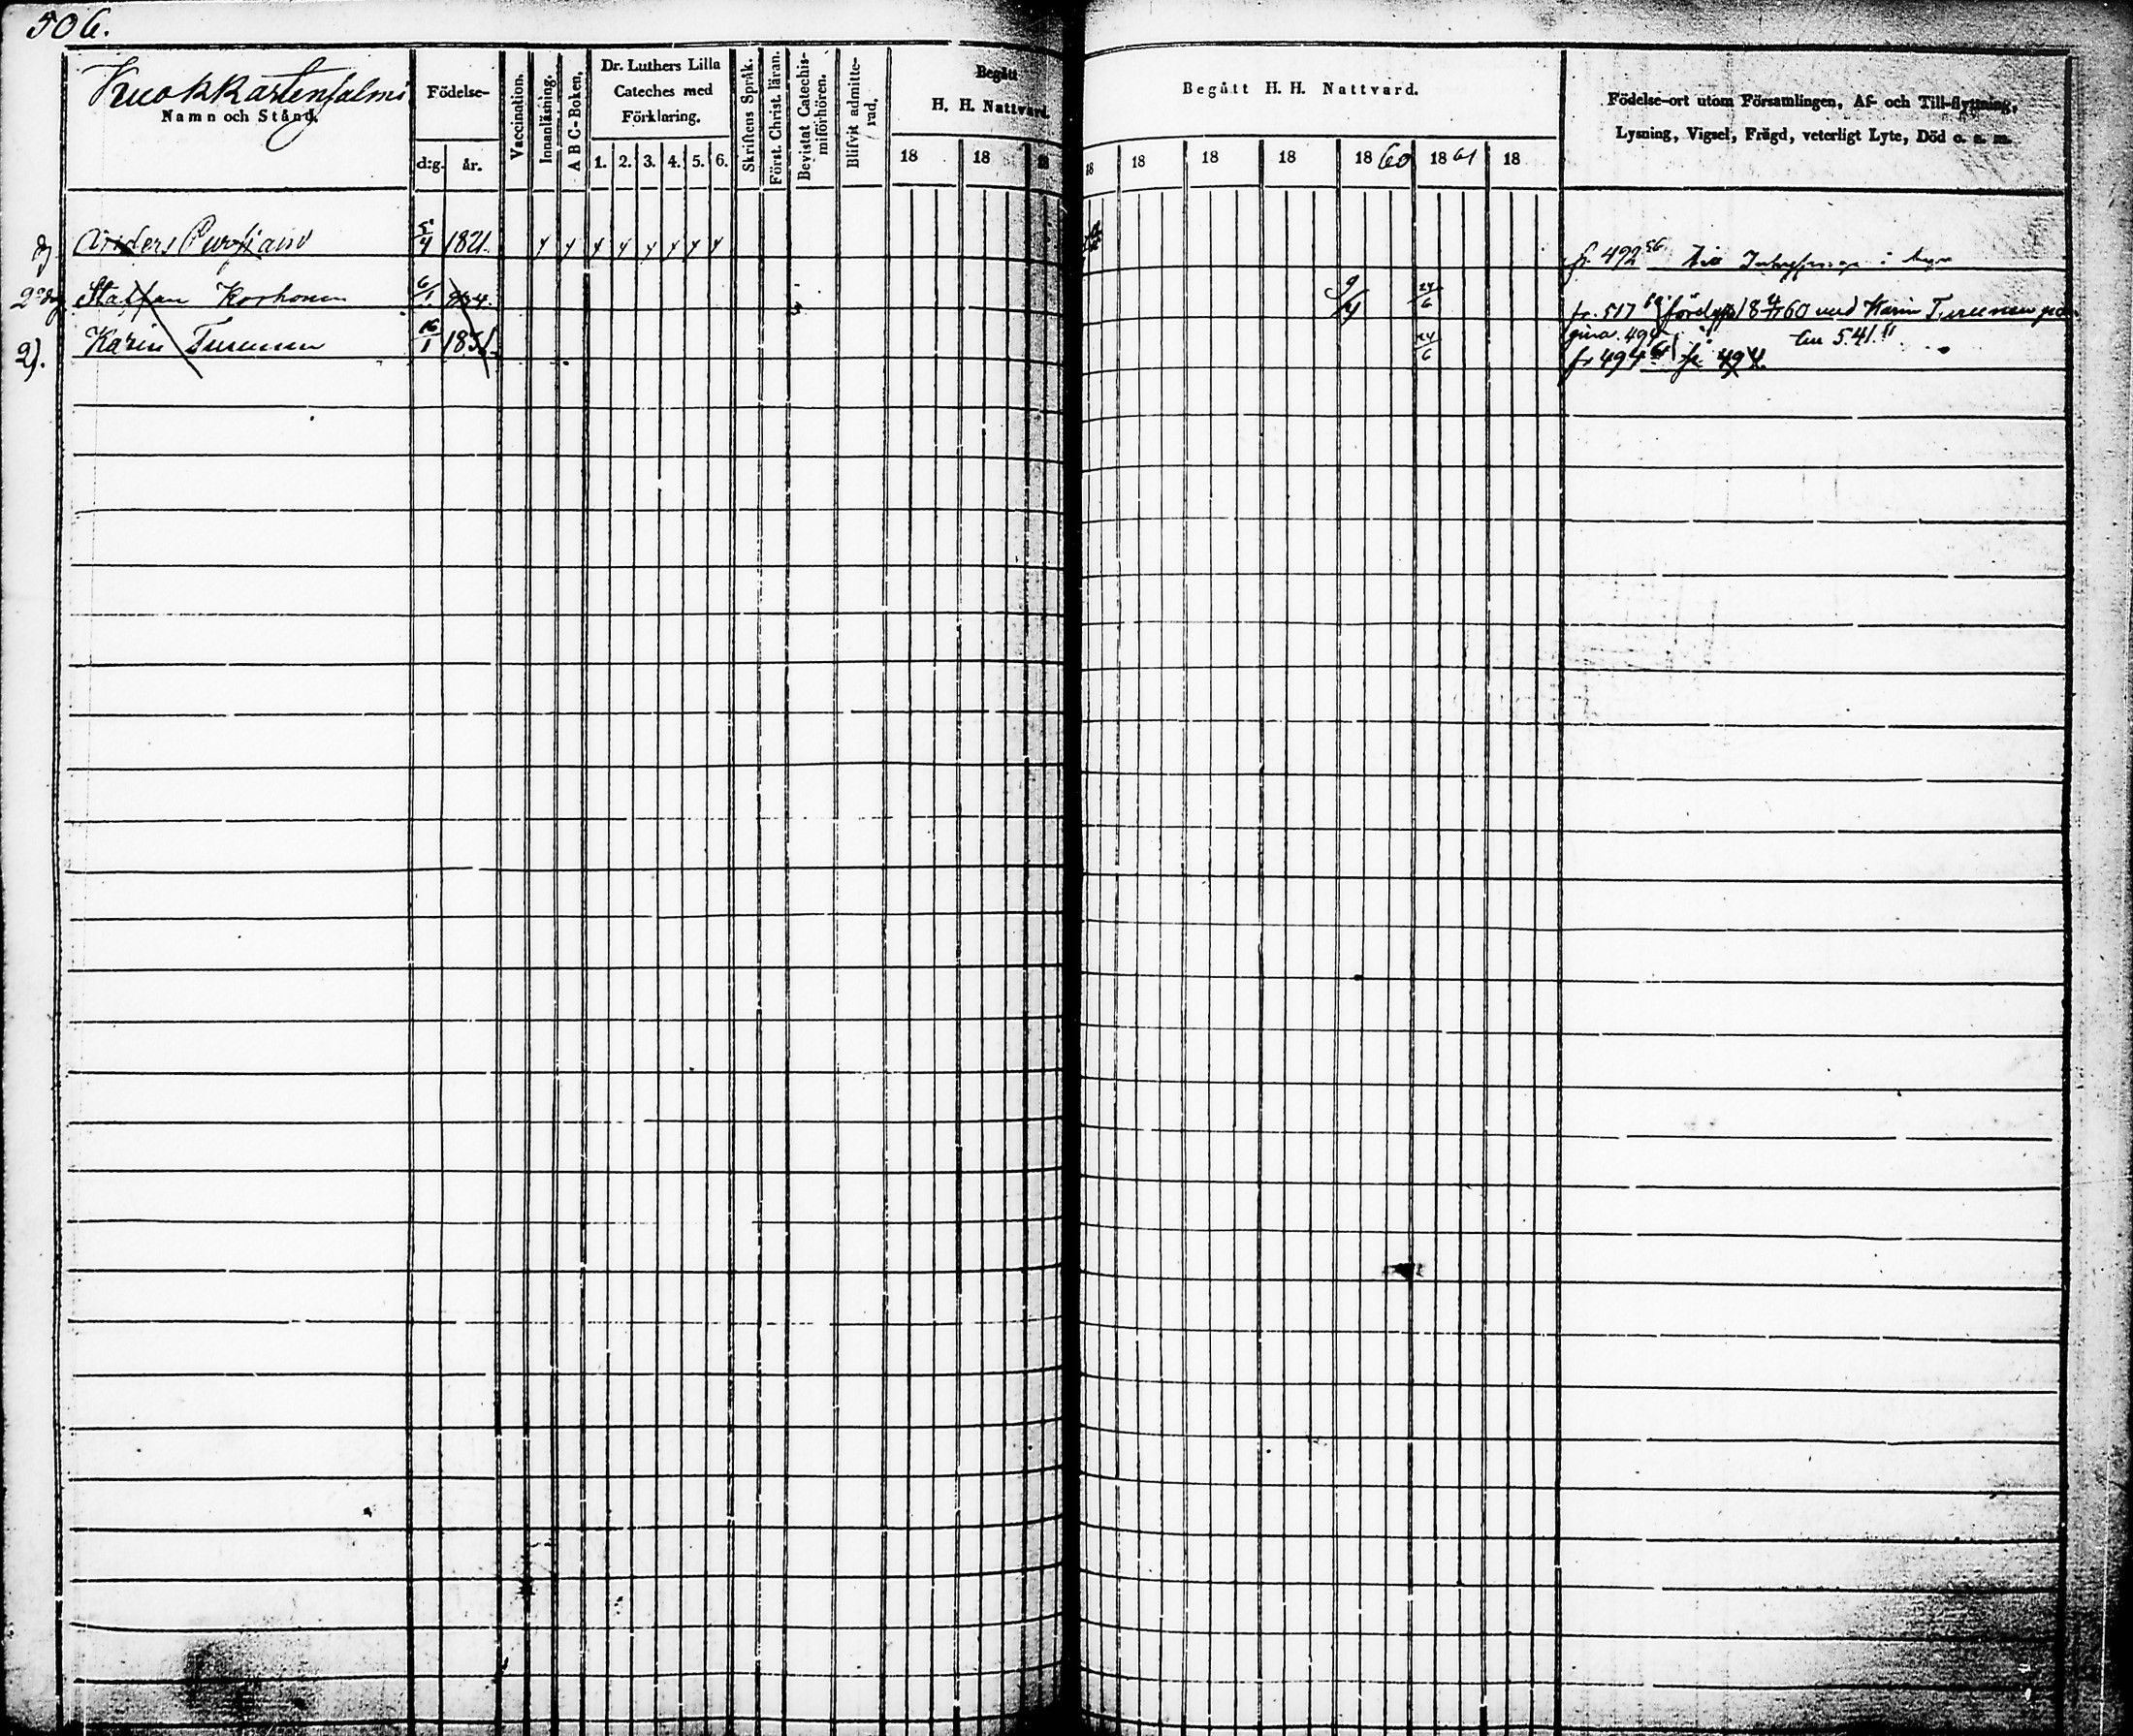 506.
Kuokkastensalmi
Namn och Stånd.
Födelse-
d:g. år.
Vaccination.
Innanläsning.
A B C-Boken,
Dr. Luthers Lilla
Cateches med
Förklaring.
1. 2. 3. 4. 5. 6.
Skriftens Språk.
Först. Christ. läran.
Bevistat Catechis-
miförhören.
Blifvit admitte-
rad,
Begått
H. H. Nattvard.
18 18 18
Begått H. H. Nattvard.
18 18 18 18 1860 1861 18
Födelse-ort utom Församlingen, Af- och Till-flyttning,
Lysning, Vigsel, Frägd, veterligt Lyte, Död o. s. m.
Anders 5/4 1821 fr 492 56 i
Staffan Korhonen 6/1 24/6 fr. 517 1860 med Karin Turunen
494 541
2). Karin Turunen 16/1 1831 24/6 fr 494 61 fr 494.